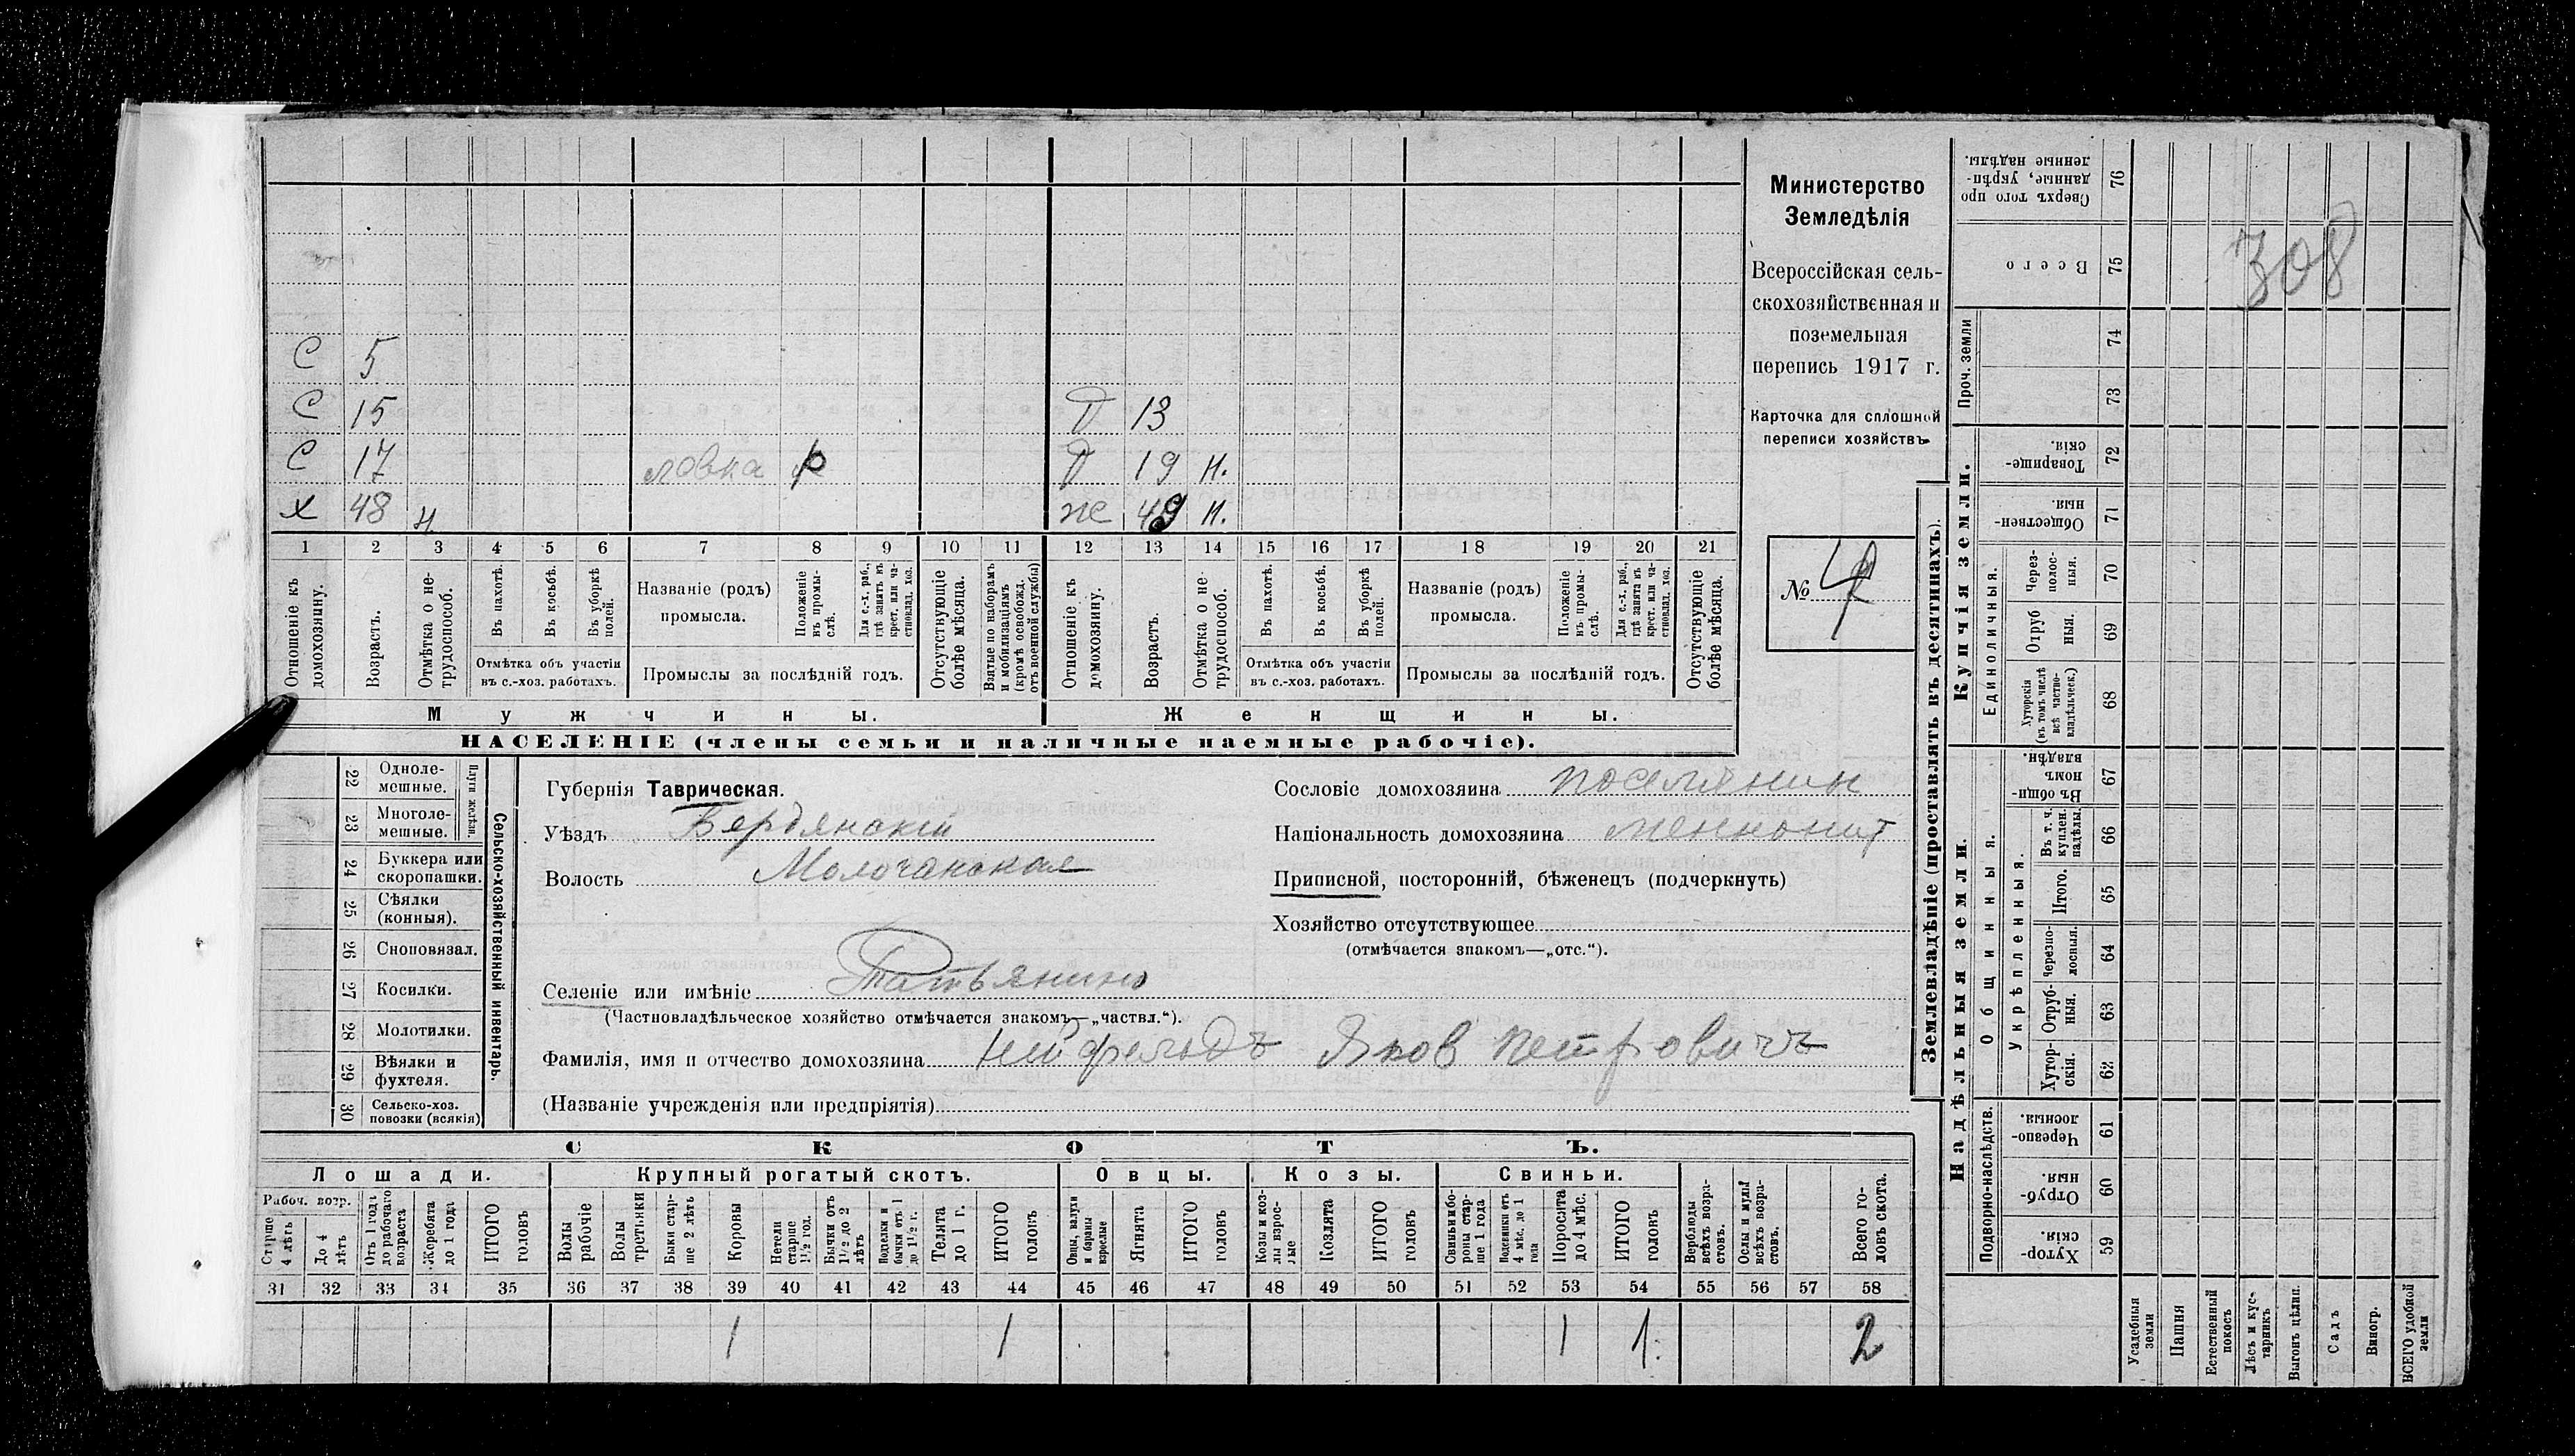 С 5
С 15 Д 13
С 17 лавка р Д 19 н.
х 48 н же 49 н.
1 2 3 4 5 6 7 8 9 10 11 12 13 14 15 16 17 18 19 20 21
Отношеніе къ домохозяину.
Возрастъ.
Отмѣтка о нетрудоспособ.
Въ пахотѣ.
Въ косьбѣ.
Въ уборкѣ полей.
Отмѣтка объ участіи
въ с.-хоз. работахъ.
Названіе (родъ)
промысла.
Положеніе въ промыслѣ.
Для с.-х. раб., гдѣ занятъ въ крест. или частновлад. хоз.
Промыслы за послѣдній годъ.
Отсутствующіе болѣе мѣсяца.
Взятые по наборамъ и мобилизаціямъ (кромѣ освобожд. отъ военной службы)
Отношеніе къ домохозяину.
Возрастъ.
Отмѣтка о нетрудоспособ.
Въ пахотѣ.
Въ косьбѣ.
Въ уборкѣ полей.
Отмѣтка объ участіи
въ с.-хоз. работахъ.
Названіе (родъ)
промысла.
Положеніе въ промыслѣ.
Для с.-х. раб., гдѣ занята въ крест. или частновлад. хоз.
Промыслы за послѣдній годъ.
Отсутствующіе болѣе мѣсяца.
Мужчины. Женщины.
НАСЕЛЕНІЕ (члены семьи и наличные наемные рабочіе).
Министерство
Земледѣлія
Всероссійская сель-
скохозяйственная и
поземельная
перепись 1917 г.
Карточка для сплошной
переписи хозяйствъ
№
308
Сельско-хозяйственный инвентарь.
Плуги желѣзн.
22 Одноле-
мешные.
23 Многоле-
мешные.
24 Буккера или
скоропашки.
25 Сѣялки
(конныя).
26 Сноповязал.
27 Косилки.
28 Молотилки.
29 Вѣялки и
фухтеля.
30 Сельско-хоз.
повозки (всякія)
Губернія Таврическая.
Уѣздъ Бердянскій
Волость Молочанская
Сословіе домохозяина поселянин
Національность домохозяина меннонит
Приписной, посторонній, бѣженецъ (подчеркнуть)
Хозяйство отсутствующее
(отмѣчается знакомъ—„отс.“).
Селеніе или имѣніе Татьянино
(Частновладѣльческое хозяйство отмѣчается знакомъ—„частвл.“).
Фамилія, имя и отчество домохозяина Нейфельдъ Яков Петровичъ
(Названіе учрежденія или предпріятія)
СКОТЪ.
Лошади. Крупный рогатый скотъ. Овцы. Козы. Свиньи.
Рабоч. возр.
Старше 4 лѣтъ
До 4 лѣтъ
Отъ 1 года до рабочаго возраста
Жеребята до 1 года
ИТОГО головъ
Волы рабочіе
Волы третьяки
Быки старше 2 лѣтъ
Коровы
Нетели старше 1 1/2 год.
Бычки отъ 1 1/2 до 2 лѣтъ
Подтелки и бычки отъ 1 до 1 1/2 г.
Телята до 1 г.
ИТОГО головъ
Овцы, валухи и бараны взрослые
Ягнята
ИТОГО головъ
Козы и козлы взрослые
Козлята
ИТОГО головъ
Свиньи и бороны старше 1 года
Подсвинки отъ 4 мѣс. до 1 года
Поросята до 4 мѣс.
ИТОГО головъ
Верблюды всѣхъ возрастовъ.
Ослы и мулы всѣхъ возрастовъ.
Всего головъ скота.
31 32 33 34 35 36 37 38 39 40 41 42 43 44 45 46 47 48 49 50 51 52 53 54 55 56 57 58
1 1 1 1. 2
Землевладѣніе (проставлять въ десятинахъ).
Купчія земли.
Надѣльныя земли.
Сверхъ того проданные, укрѣпленные надѣлы. 76
Всего 75
Проч. земли 74
73
Товарищескія. 72
Общественныя. 71
Единоличныя.
Черезполосныя. 70
Отрубныя. 69
Хуторскія (въ томъ числѣ всѣ частновладѣльческ.) 68
Въ общинномъ владѣн. 67
Общинныя.
Укрѣпленныя.
Въ т. ч. куплен. надѣлы. 66
Итого. 65
Черезполосныя. 64
Отрубныя. 63
Хуторскія. 62
Подворно-наслѣдств.
Черезполосныя. 61
Отрубныя. 60
Хуторскія. 59
Усадебныя земли
Пашня
Естественный покосъ
Лѣсъ и кустарникъ
Выгонъ цѣлин.
Садъ
Виногр.
ВСЕГО удобной земли